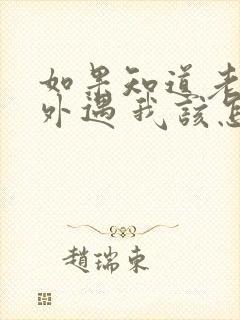 如果知道老
外遇我该怎
趙瑞東